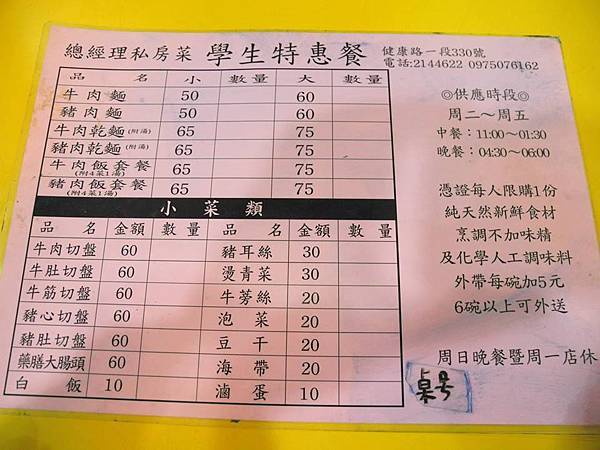 總經理私房菜 學生特惠餐 健康路一段330號
電話:2144622 0975076162
品 名 小 數量 大 數量
牛肉麵 50 60
豬肉麵 50 60
牛肉乾麵(附湯) 65 75
豬肉乾麵(附湯) 65 75
牛肉飯套餐(附4菜1湯) 65 75
豬肉飯套餐(附4菜1湯) 65 75
小菜類
品 名 金額 數量 品 名 金額 數量
牛肉切盤 60 豬耳絲 30
牛肚切盤 60 燙青菜 30
牛筋切盤 60 牛蒡絲 20
豬心切盤 60 泡菜 20
豬肚切盤 60 豆干 20
藥膳大腸頭 60 海帶 20
白飯 10 滷蛋 10
◎供應時段◎
周二～周五
中餐：11:00～01:30
晚餐：04:30～06:00
憑證每人限購1份
純天然新鮮食材
烹調不加味精
及化學人工調味料
外帶每碗加5元
6碗以上可外送
周日晚餐暨周一店休
桌号